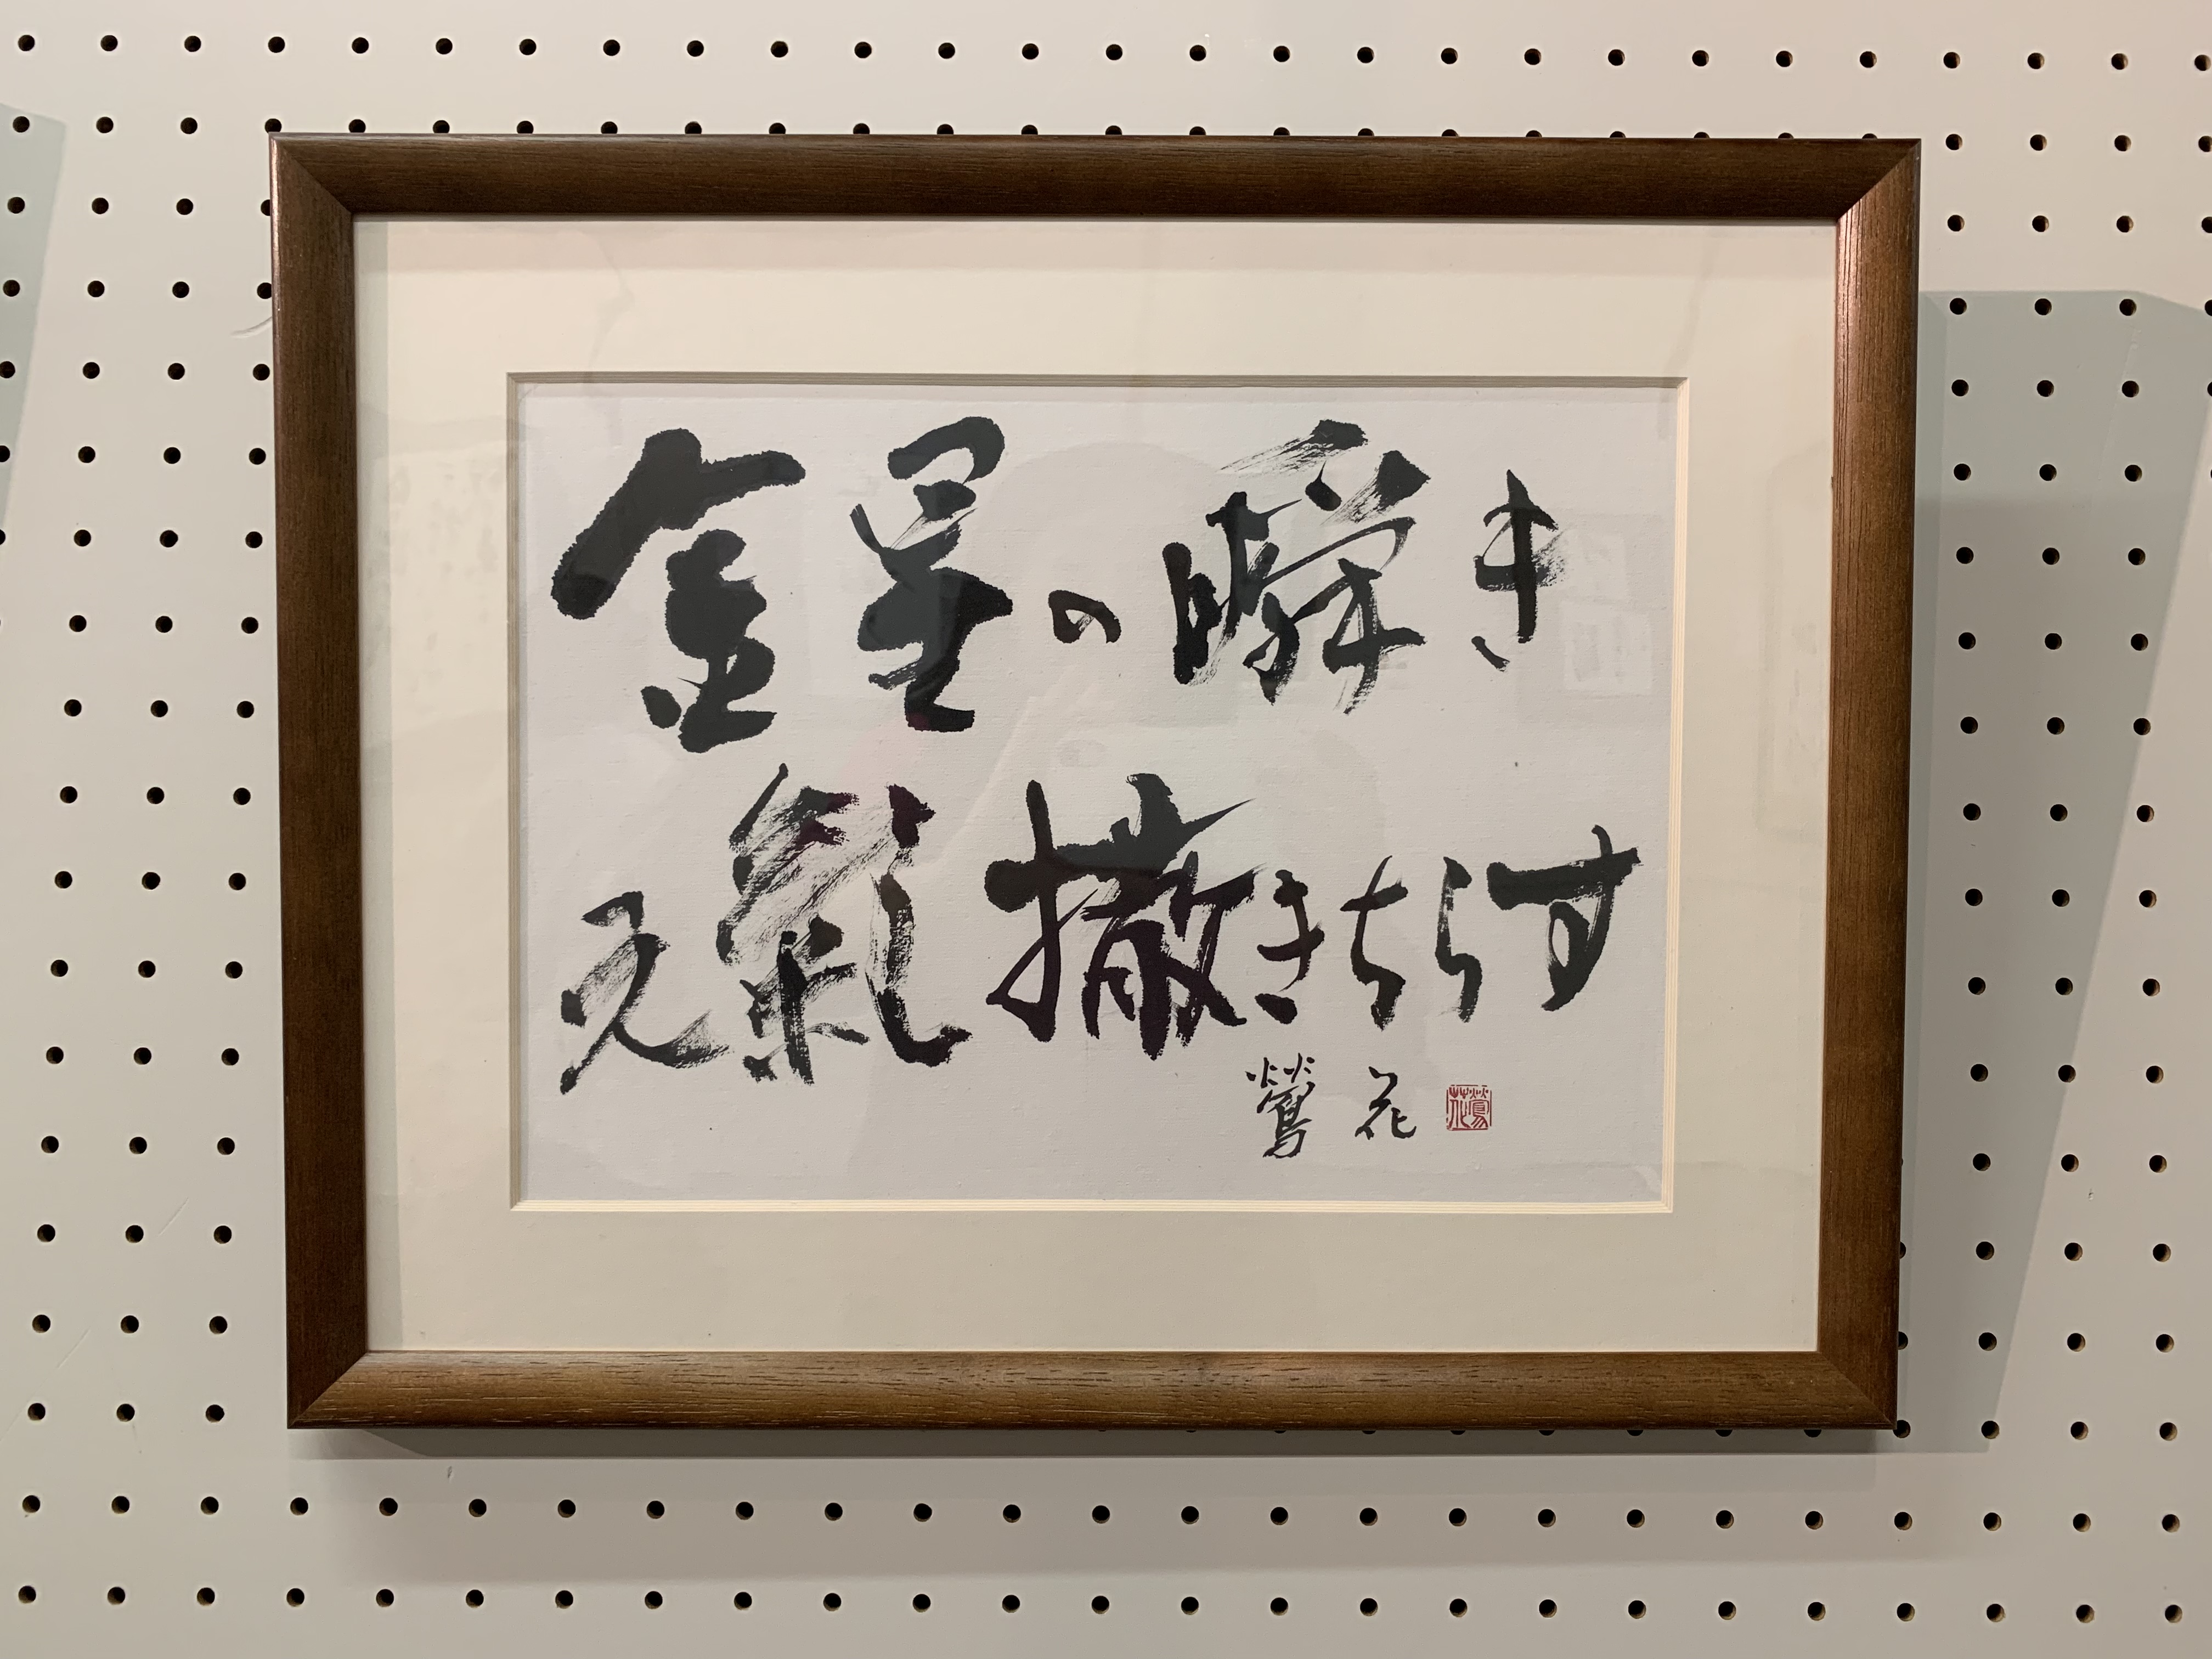 金星の瞬き
元氣撒きちらす
鶯花
鶯花